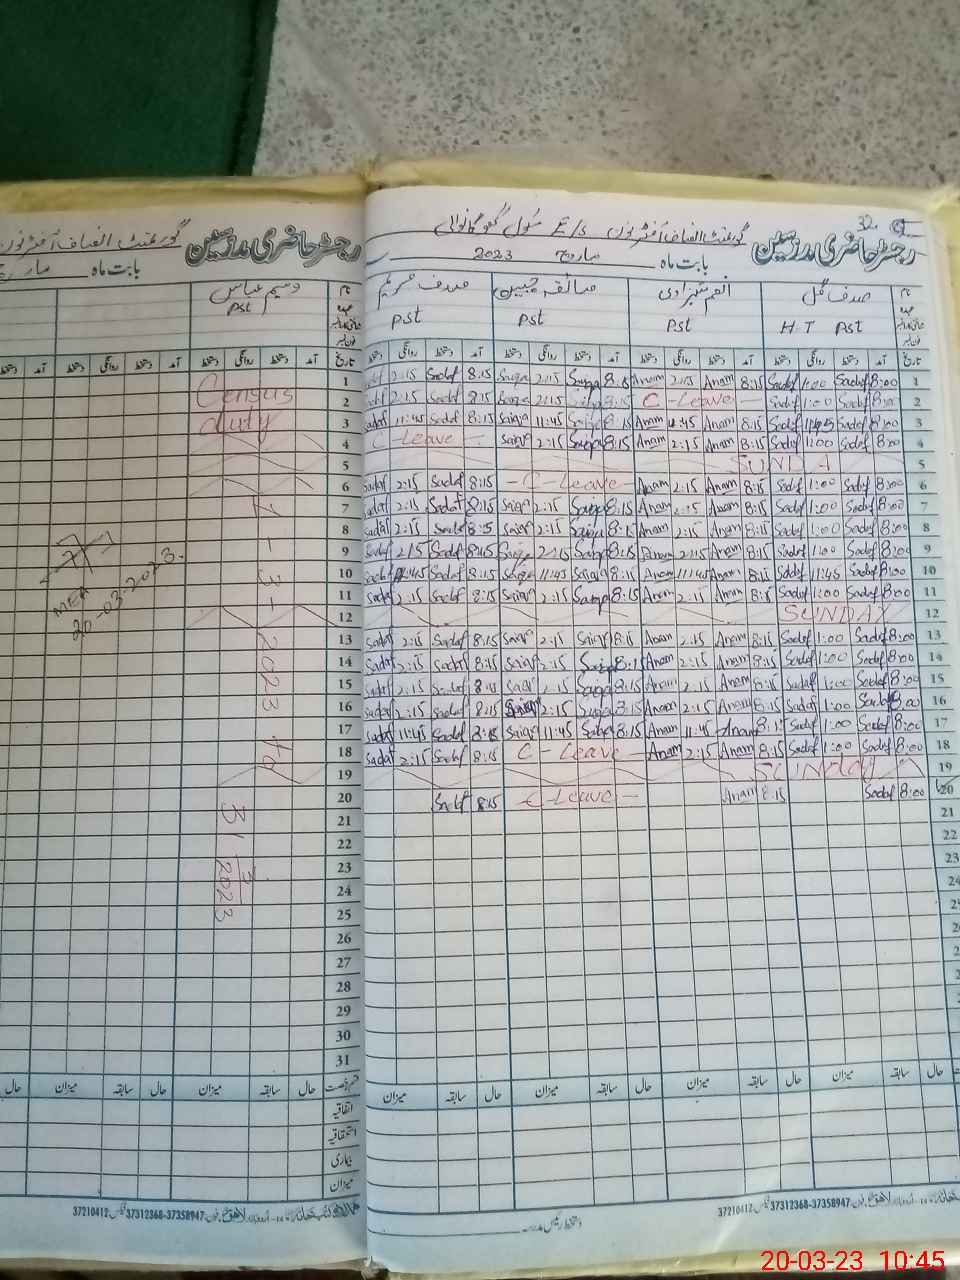 رجسٹر حاضری مدرسین
گورنمنٹ انصاف آفٹرنون
بابت ماہ مارچ
نام
وسیم عباس
Pst
تاریخ
آمد دستخط روانگی دستخط آمد دستخط روانگی دستخط آمد دستخط
1
Census
2
duty
3
4
5
6
7
8
9
10
11
12
13
14
15
16
17
18
19
20
21
22
23
24
25
26
27
28
29
30
31
1-3-2023 to 31 3 2023
MEA
20-03-2023.
حال سابقہ میزان حال سابقہ میزان حال
اتفاقیہ
استحقاقیہ
بیماری
میزان
37210412 37312368-37358947
32
رجسٹر حاضری مدرسین
گورنمنٹ انصاف آفٹرنون E/S سکول
بابت ماہ مارچ 2023
نام صدف گل انعم شہزادی صائقہ جبین صدف مریم
H T Pst Pst Pst Pst
تاریخ آمد دستخط روانگی دستخط آمد دستخط روانگی دستخط آمد دستخط روانگی دستخط آمد دستخط روانگی دستخط
2:15 Sadaf 8:15 Saiqa 2:15 Saiqa 8:15 Anam 2:15 Anam 8:15 Sadef 1:00 Sadef 8:00 1
2:15 Sadaf 8:15 Saiqa 2:15 Saiqa 8:15 C-Leave- Sadef 1:00 Sadef 8:00 2
11:45 Sadaf 8:15 Saiqa 11:45 8:15 Anam 11:45 Anam 8:15 Sadef 11:45 Sadef 8:00 3
C-Leave- Saiqa 2:15 Saiqa 8:15 Anam 2:15 Anam 8:15 Sadef 1:00 Sadef 8:00 4
SUNDA 5
Sadaf 2:15 Sadaf 8:15 -C-Leave- Anam 2:15 Anam 8:15 Sadef 1:00 Sadef 8:00 6
2:15 Sadaf 8:15 Saiqa 2:15 Saiqa 8:15 Anam 2:15 Anam 8:15 Sadef 1:00 Sadef 8:00 7
Sadaf 2:15 Sadaf Saiqa 2:15 Saiqa 8:15 Anam 2:15 Anam 8:15 Sadef 1:00 Sadef 8:00 8
Sadaf 2:15 Sadaf 8:15 Saiqa 2:15 Saiqa 8:15 Anam 2:15 Anam 8:15 Sadef 1:00 Sadef 8:00 9
11:45 Sadaf 8:15 Saiqa 11:45 Saiqa 8:15 Anam 11:45 Anam 8:15 Sadef 11:45 Sadef 8:00 10
Sadaf 2:15 Sadaf 8:15 Saiqa 2:15 Saiqa 8:15 Anam 2:15 Anam 8:15 Sadef 1:00 Sadef 8:00 11
SUNDAY 12
Sadaf 2:15 Sadaf 8:15 Saiqa 2:15 Saiqa 8:15 Anam 2:15 Anam 8:15 Sadef 1:00 Sadef 8:00 13
Sadaf 2:15 Sadaf 8:15 Saiqa 2:15 Saiqa 8:15 Anam 2:15 Anam 8:15 Sadef 1:00 Sadef 8:00 14
Sadaf 2:15 Sadaf Saiqa 2:15 Saiqa 8:15 Anam 2:15 Anam 8:15 Sadef 1:00 Sadef 8:00 15
Sadaf 2:15 Sadaf 8:15 Saiqa 2:15 Saiqa 8:15 Anam 2:15 Anam 8:15 Sadef 1:00 Sadef 8:00 16
Sadaf 11:45 Sadaf 8:15 Saiqa 11:45 Saiqa 8:15 Anam 11:45 Anam 8:15 Sadef 1:00 Sadef 8:00 17
Sadaf 2:15 Sadaf 8:15 C-Leave- Anam 2:15 Anam 8:15 Sadef 1:00 Sadef 8:00 18
SUNday 19
Sadaf 8:15 C-Leave- Anam 8:15 Sadef 8:00 20
21
22
23
24
28
29
30
31
حال سابقہ میزان حال سابقہ میزان حال سابقہ میزان حال سابقہ میزان
37210412 37312368-37358947
20-03-23 10:45